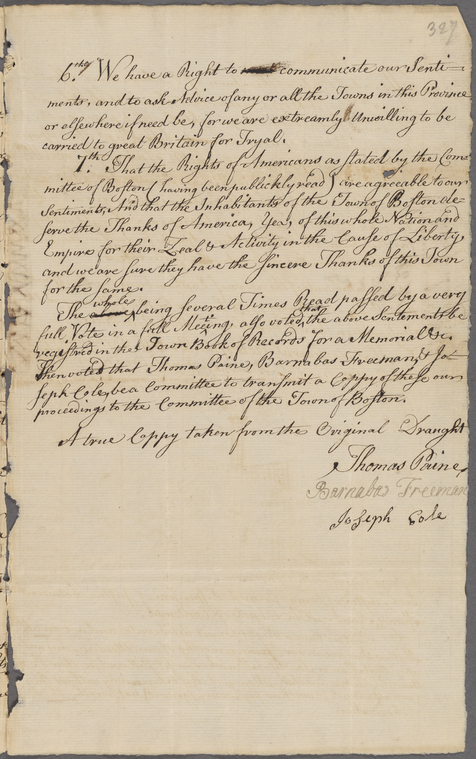 327
6.thly We have a Right to communicate our Senti-
ments, and to ask Advice of any or all the Towns in this Province
or elsewhere if need be, for we are extreamly Unwilling to be
carried to great Britain for Tryal.
7.th That the Rights of Americans as stated by the Com-
mittee of Boston (having been publickly read) are agreeable to our
Sentiments, And that the Inhabitants of the Town of Boston de-
serve the Thanks of America, Yea, of this whole Nation and
Empire for their Zeal & Activity in the Cause of Liberty,
and we are sure they have the Sincere Thanks of this Town
for the same.
The whole being several Times Read passed by a very
full Vote in a full Meeting, also voted that the above Sentiments be
registred in the Town Book of Records for a Memorial &c.
Then voted that Thomas Paine, Barnabas Freeman, & Jo-
seph Cole, be a Committee to transmit a Coppy of these our
proceedings to the Committee of the Town of Boston.
A true Coppy taken from the Original Draught
Thomas Paine
Barnabas Freeman
Joseph Cole